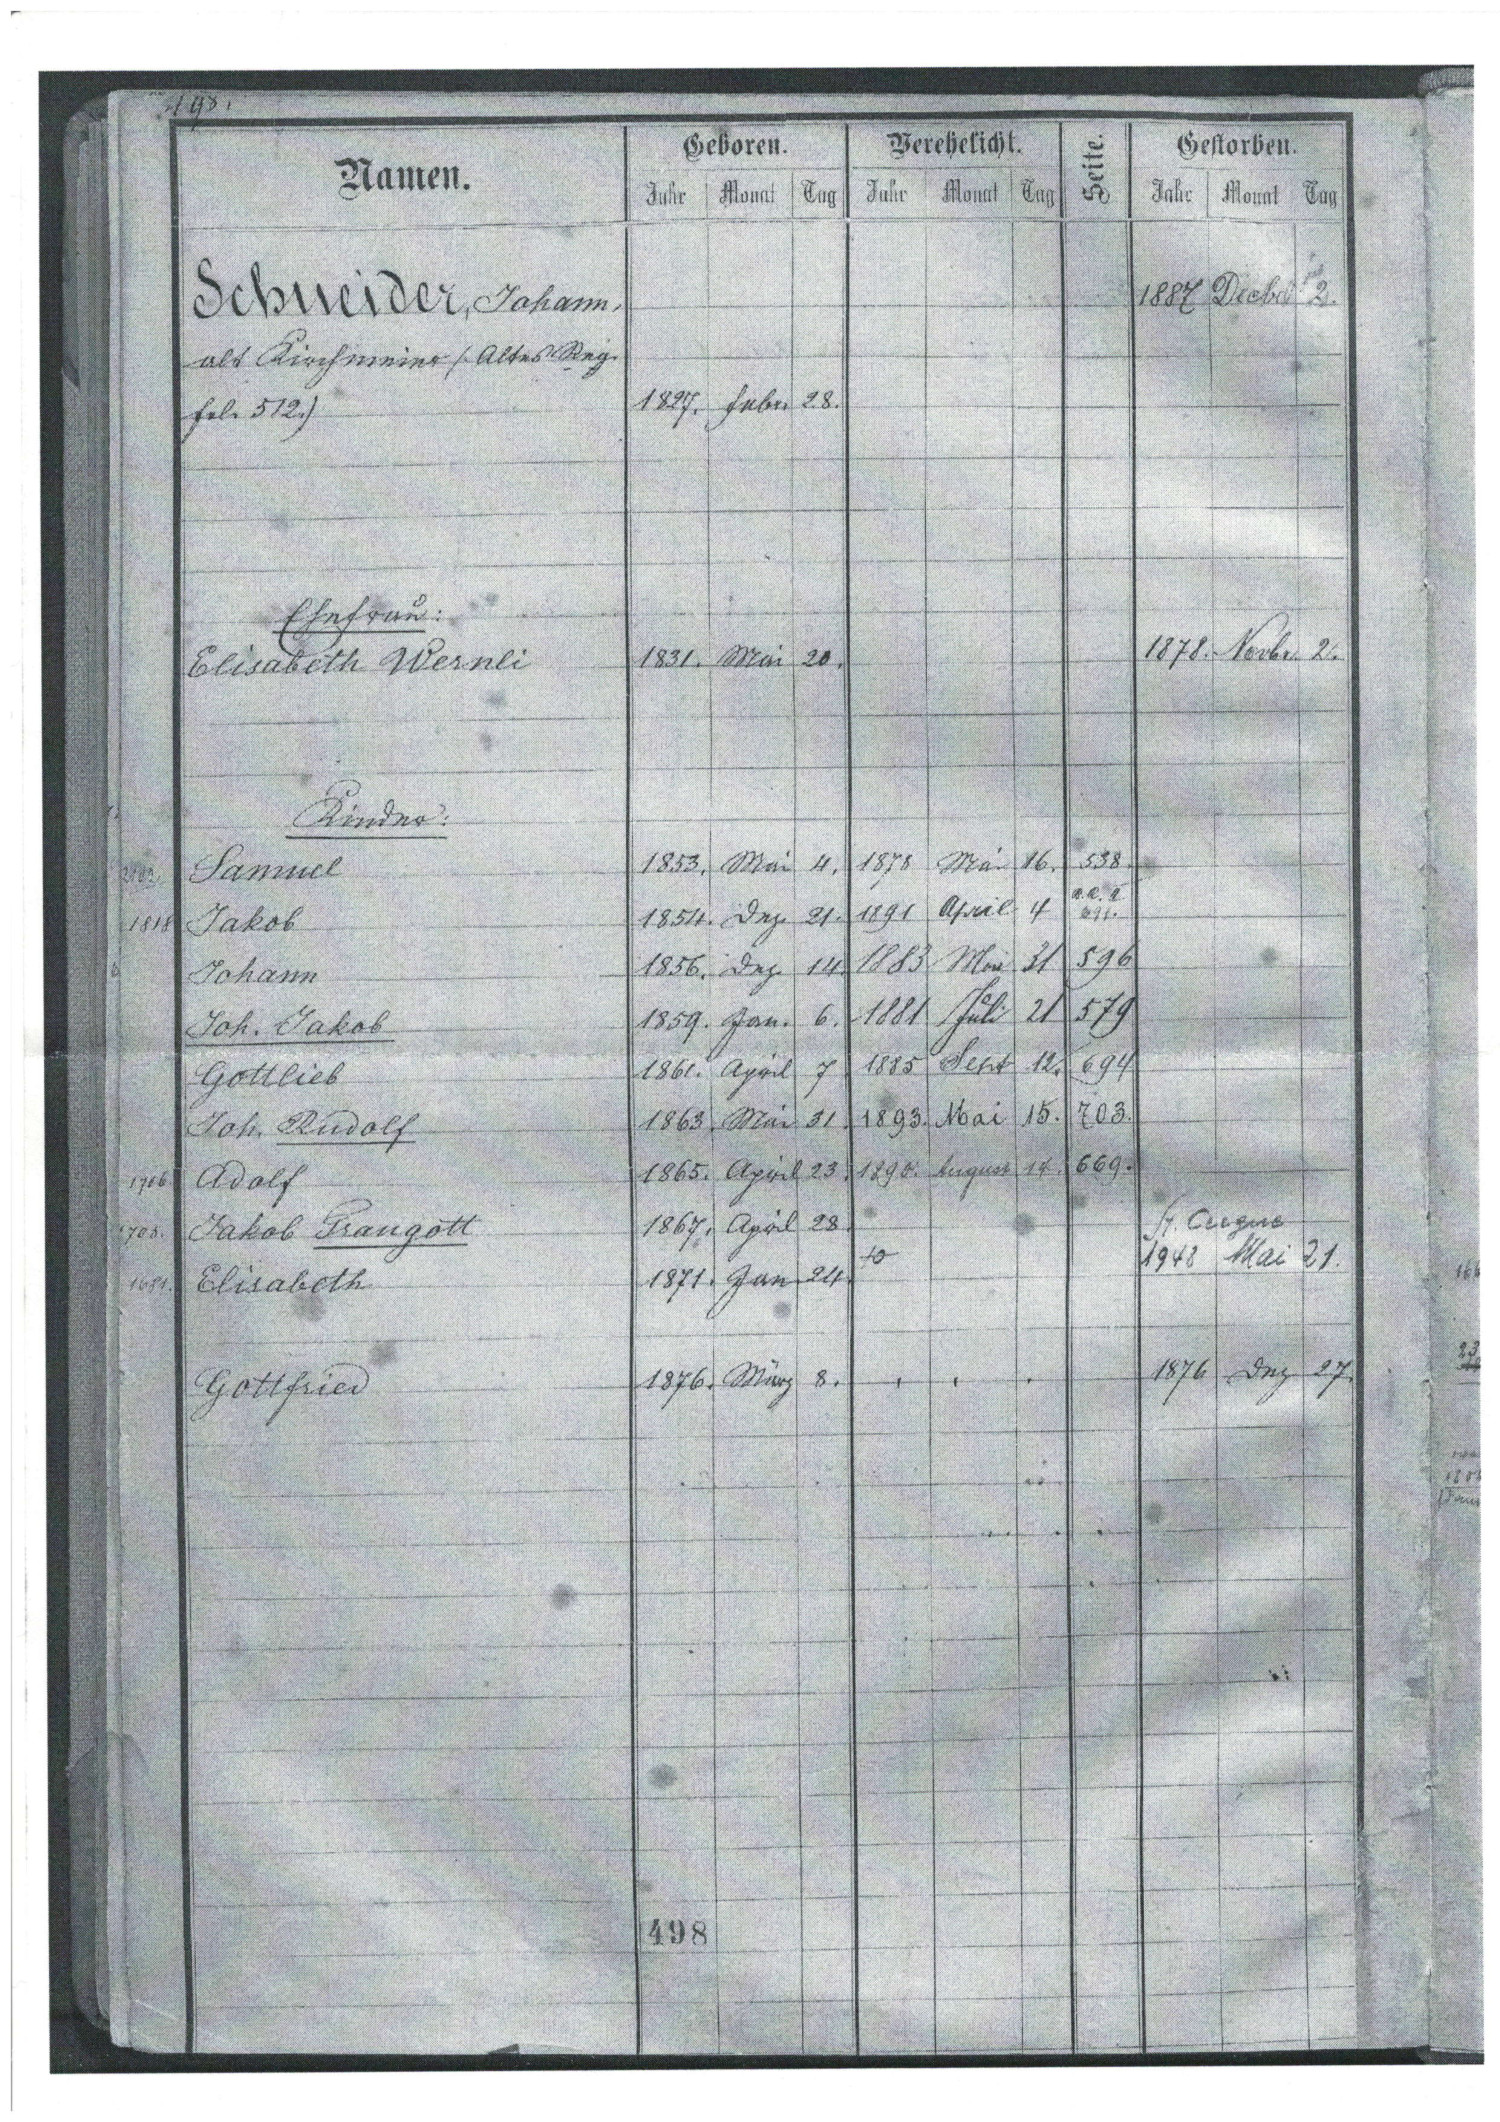 498.
Namen. Geboren. Verehelicht. Seite. Gestorben.
Jahr Monat Tag Jahr Monat Tag Jahr Monat Tag
Schneider, Johann, 1887 Decbr 2.
alt Kirchmeier (Altes Reg.
fol. 512.) 1827. Febr. 28.
Ehefrau:
Elisabeth Wernli 1831. Mai 20. 1878. Novbr. 2.
Kinder:
Samuel 1853. Mai 4. 1878 Mai 16. 538.
1818 Jakob 1854. Dez. 21. 1891 April 4
Johann 1856. Dez. 14. 1883 Mai 31 596
Joh. Jakob 1859. Jan. 6. 1881 Juli 21 579
Gottlieb 1861. April 7 1885 Sept 12. 694
Joh. Rudolf 1863. Mai 31. 1893. Mai 15. 703.
1706. Adolf 1865. April 23. 1890. August 14. 669.
Jakob Traugott 1867. April 28.
1948 Mai 21.
Elisabeth 1871. Jan 24.
Gottfried 1876. März 8. 1876 Dez 27.
498